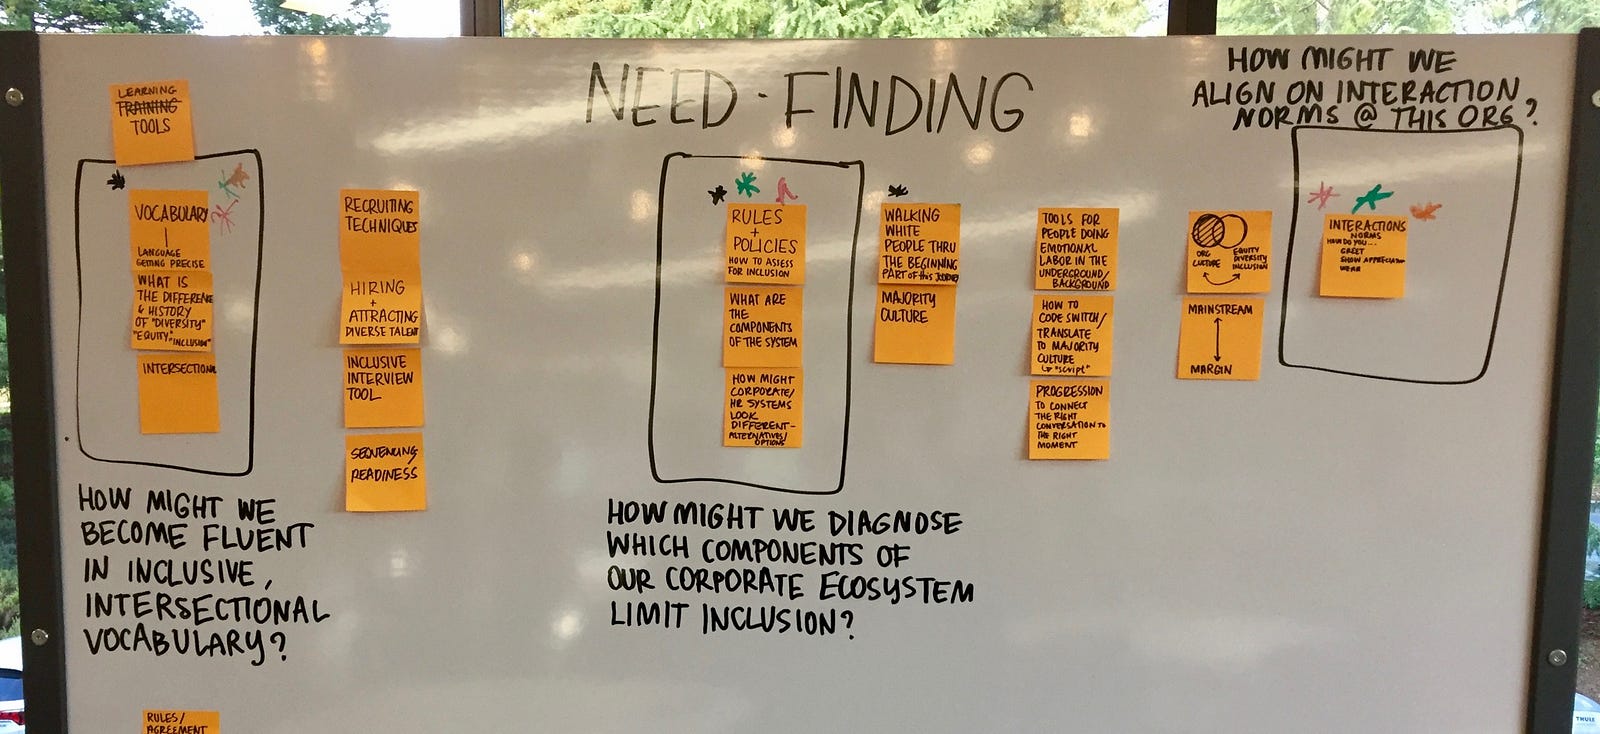 NEED-FINDING
HOW MIGHT WE
ALIGN ON INTERACTION
NORMS @ THIS ORG?
LEARNING
TRAINING
TOOLS
VOCABULARY
LANGUAGE
GETTING PRECISE
WHAT IS
THE DIFFERENCE
& HISTORY
OF "DIVERSITY"
"EQUITY" "INCLUSION"
INTERSECTIONAL
HOW MIGHT WE
BECOME FLUENT
IN INCLUSIVE,
INTERSECTIONAL
VOCABULARY?
RECRUITING
TECHNIQUES
HIRING
+
ATTRACTING
DIVERSE TALENT
INCLUSIVE
INTERVIEW
TOOL
SEQUENCING
READINESS
RULES
+
POLICIES
HOW TO ASSESS
FOR INCLUSION
WHAT ARE
THE
COMPONENTS
OF THE SYSTEM
HOW MIGHT
CORPORATE/
HR SYSTEMS
LOOK
DIFFERENT-
ALTERNATIVES/
OPTIONS
HOW MIGHT WE DIAGNOSE
WHICH COMPONENTS OF
OUR CORPORATE ECOSYSTEM
LIMIT INCLUSION?
WALKING
WHITE
PEOPLE THRU
THE BEGINNING
PART of this JOURNEY
MAJORITY
CULTURE
TOOLS FOR
PEOPLE DOING
EMOTIONAL
LABOR IN THE
UNDERGROUND/
BACKGROUND
HOW TO
CODE SWITCH/
TRANSLATE
TO MAJORITY
CULTURE
↳ "script"
PROGRESSION
TO CONNECT
THE RIGHT
CONVERSATION TO
THE RIGHT
MOMENT
ORG
CULTURE
EQUITY
DIVERSITY
INCLUSION
MAINSTREAM
MARGIN
INTERACTIONS
NORMS
HOW DO YOU...
GREET
SHOW APPRECIATION
WEAR
RULES/
AGREEMENT
THULE